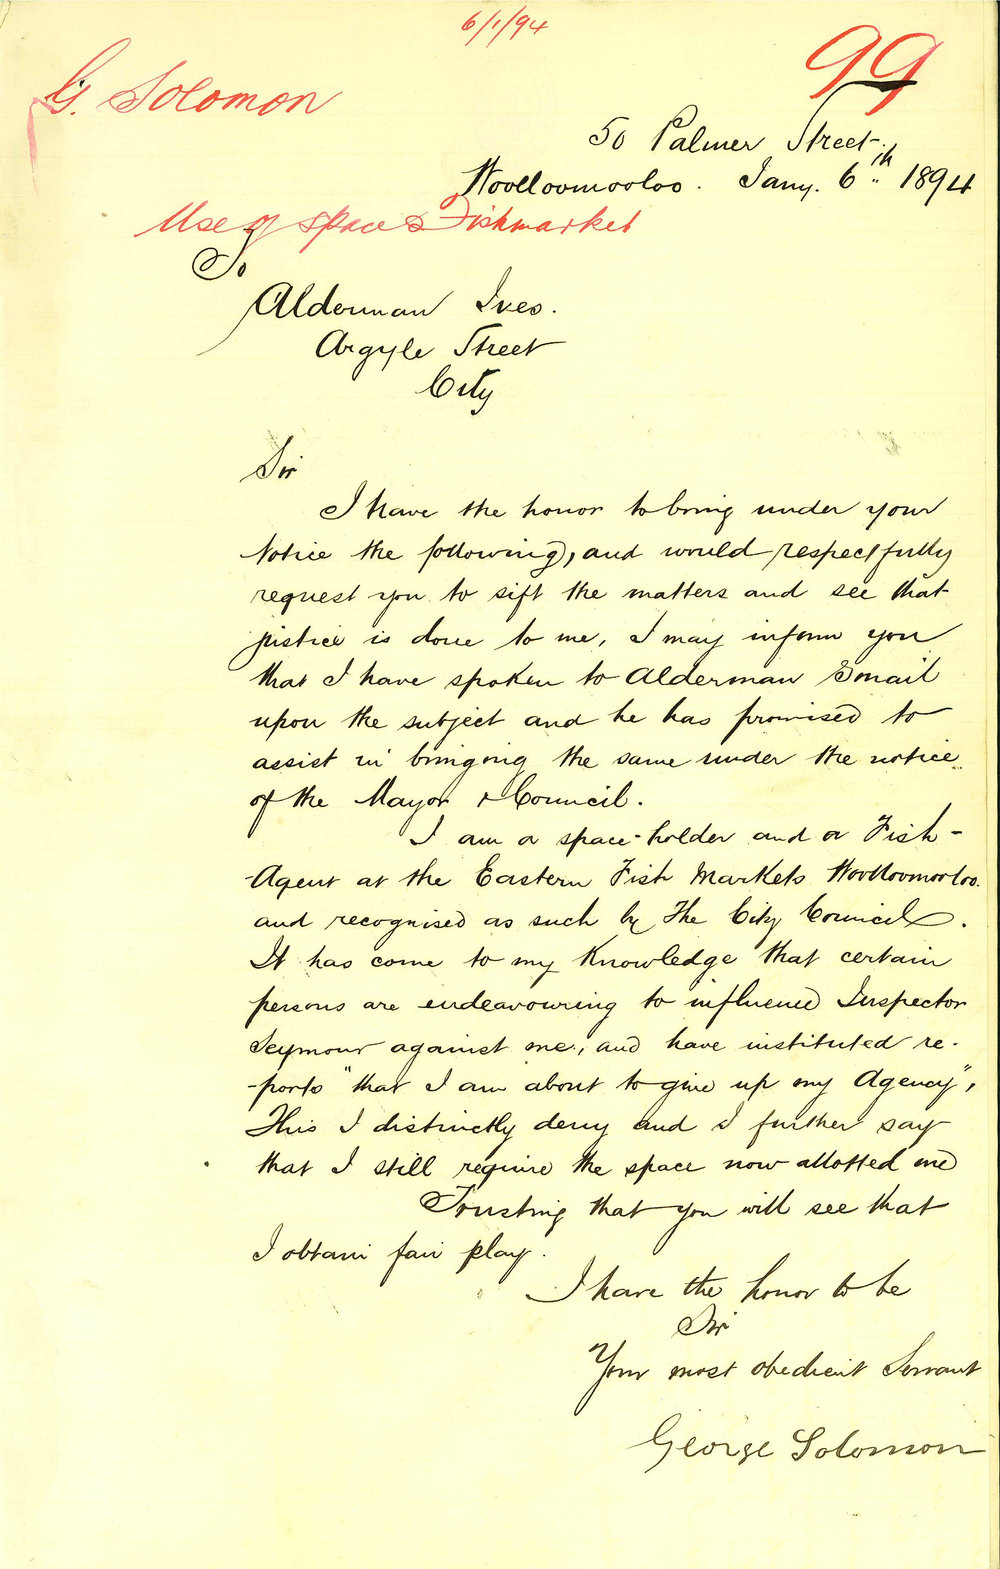 6/1/94
99
G. Solomon
50 Palmer Street.
Woolloomooloo. Jany. 6th 1894
Use of space Fishmarket
To
Alderman Ives.
Argyle Street
City
Sir
I have the honor to bring under your
Notice the following, and would respectfully
request you to sift the matters and see that
justice is done to me, I may inform you
that I have spoken to Alderman Smail
upon the subject and he has promised to
assist in bringing the same under the notice
of the Mayor & Council.
I am a space-holder and a Fish-
-Agent at the Eastern Fish Markets Woolloomooloo.
and recognised as such by The City Council.
It has come to my Knowledge that certain
persons are endeavouring to influence Inspector
Seymour against me, and have instituted re-
-ports "that I am about to give up my Agency",
This I distinctly deny and I further say
that I still require the space now allotted me
Trusting that you will see that
I obtain fair play.
I have the honor to be
Sir
Your most obedient Servant
George Solomon